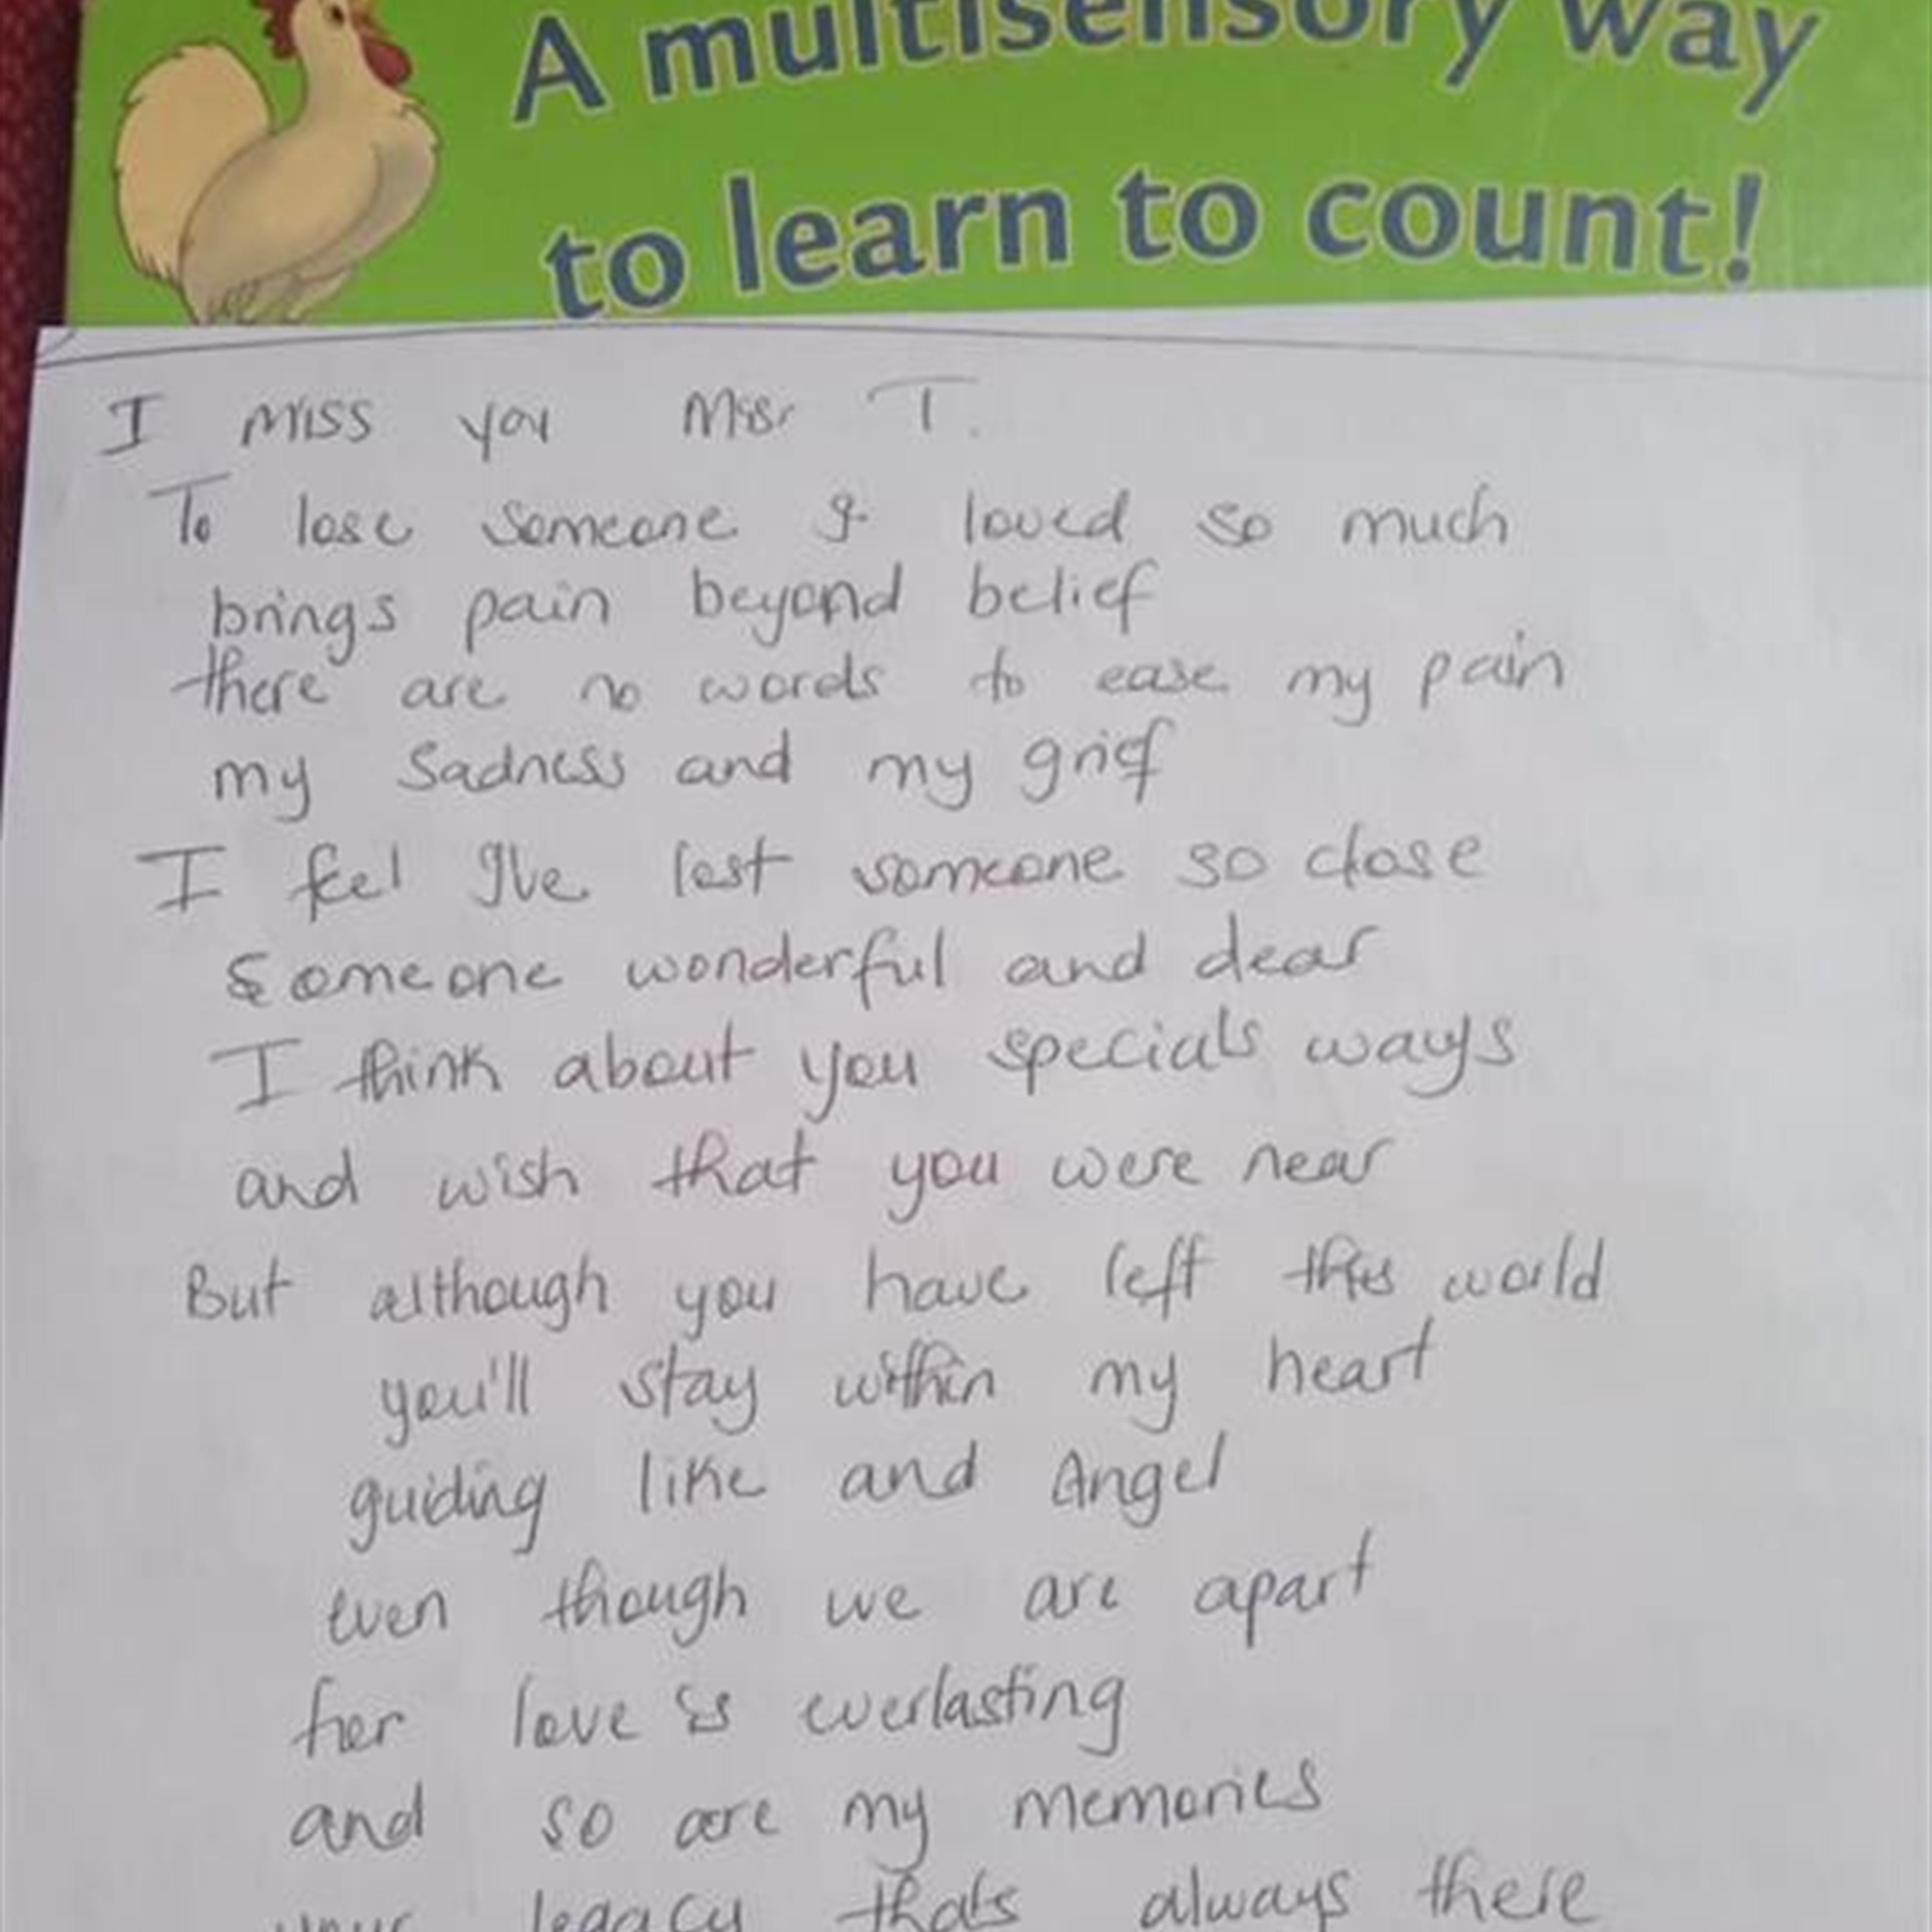 A multisensory way
to learn to count!
I miss you Miss T.
To lose someone I loved so much
brings pain beyond belief
there are no words to ease my pain
my sadness and my grief
I feel I've lost someone so close
Someone wonderful and dear
I think about you specials ways
and wish that you were near
But although you have left this world
you'll stay within my heart
guiding like and Angel
even though we are apart
for love is everlasting
and so are my memories
your legacy thats always there